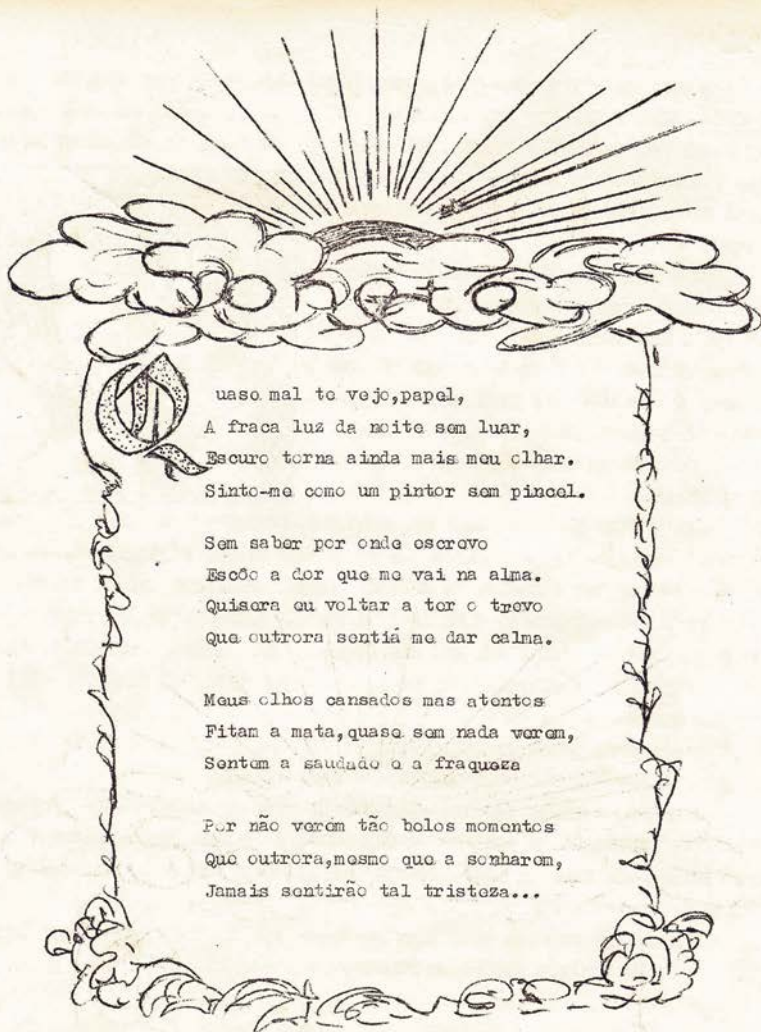 Soneto
Quase mal te vejo,papel,
A fraca luz da noite sem luar,
Escuro torna ainda mais meu olhar.
Sinto-me como um pintor sem pincel.
Sem saber por onde escrevo
Escôo a dor que me vai na alma.
Quisera eu voltar a ter o trevo
Que outrora sentiá me dar calma.
Meus olhos cansados mas atentos
Fitam a mata,quase sem nada verem,
Sentem a saudade e a fraqueza
Por não verem tão belos momentos
Que outrora,mesmo que a sonharem,
Jamais sentirão tal tristeza...